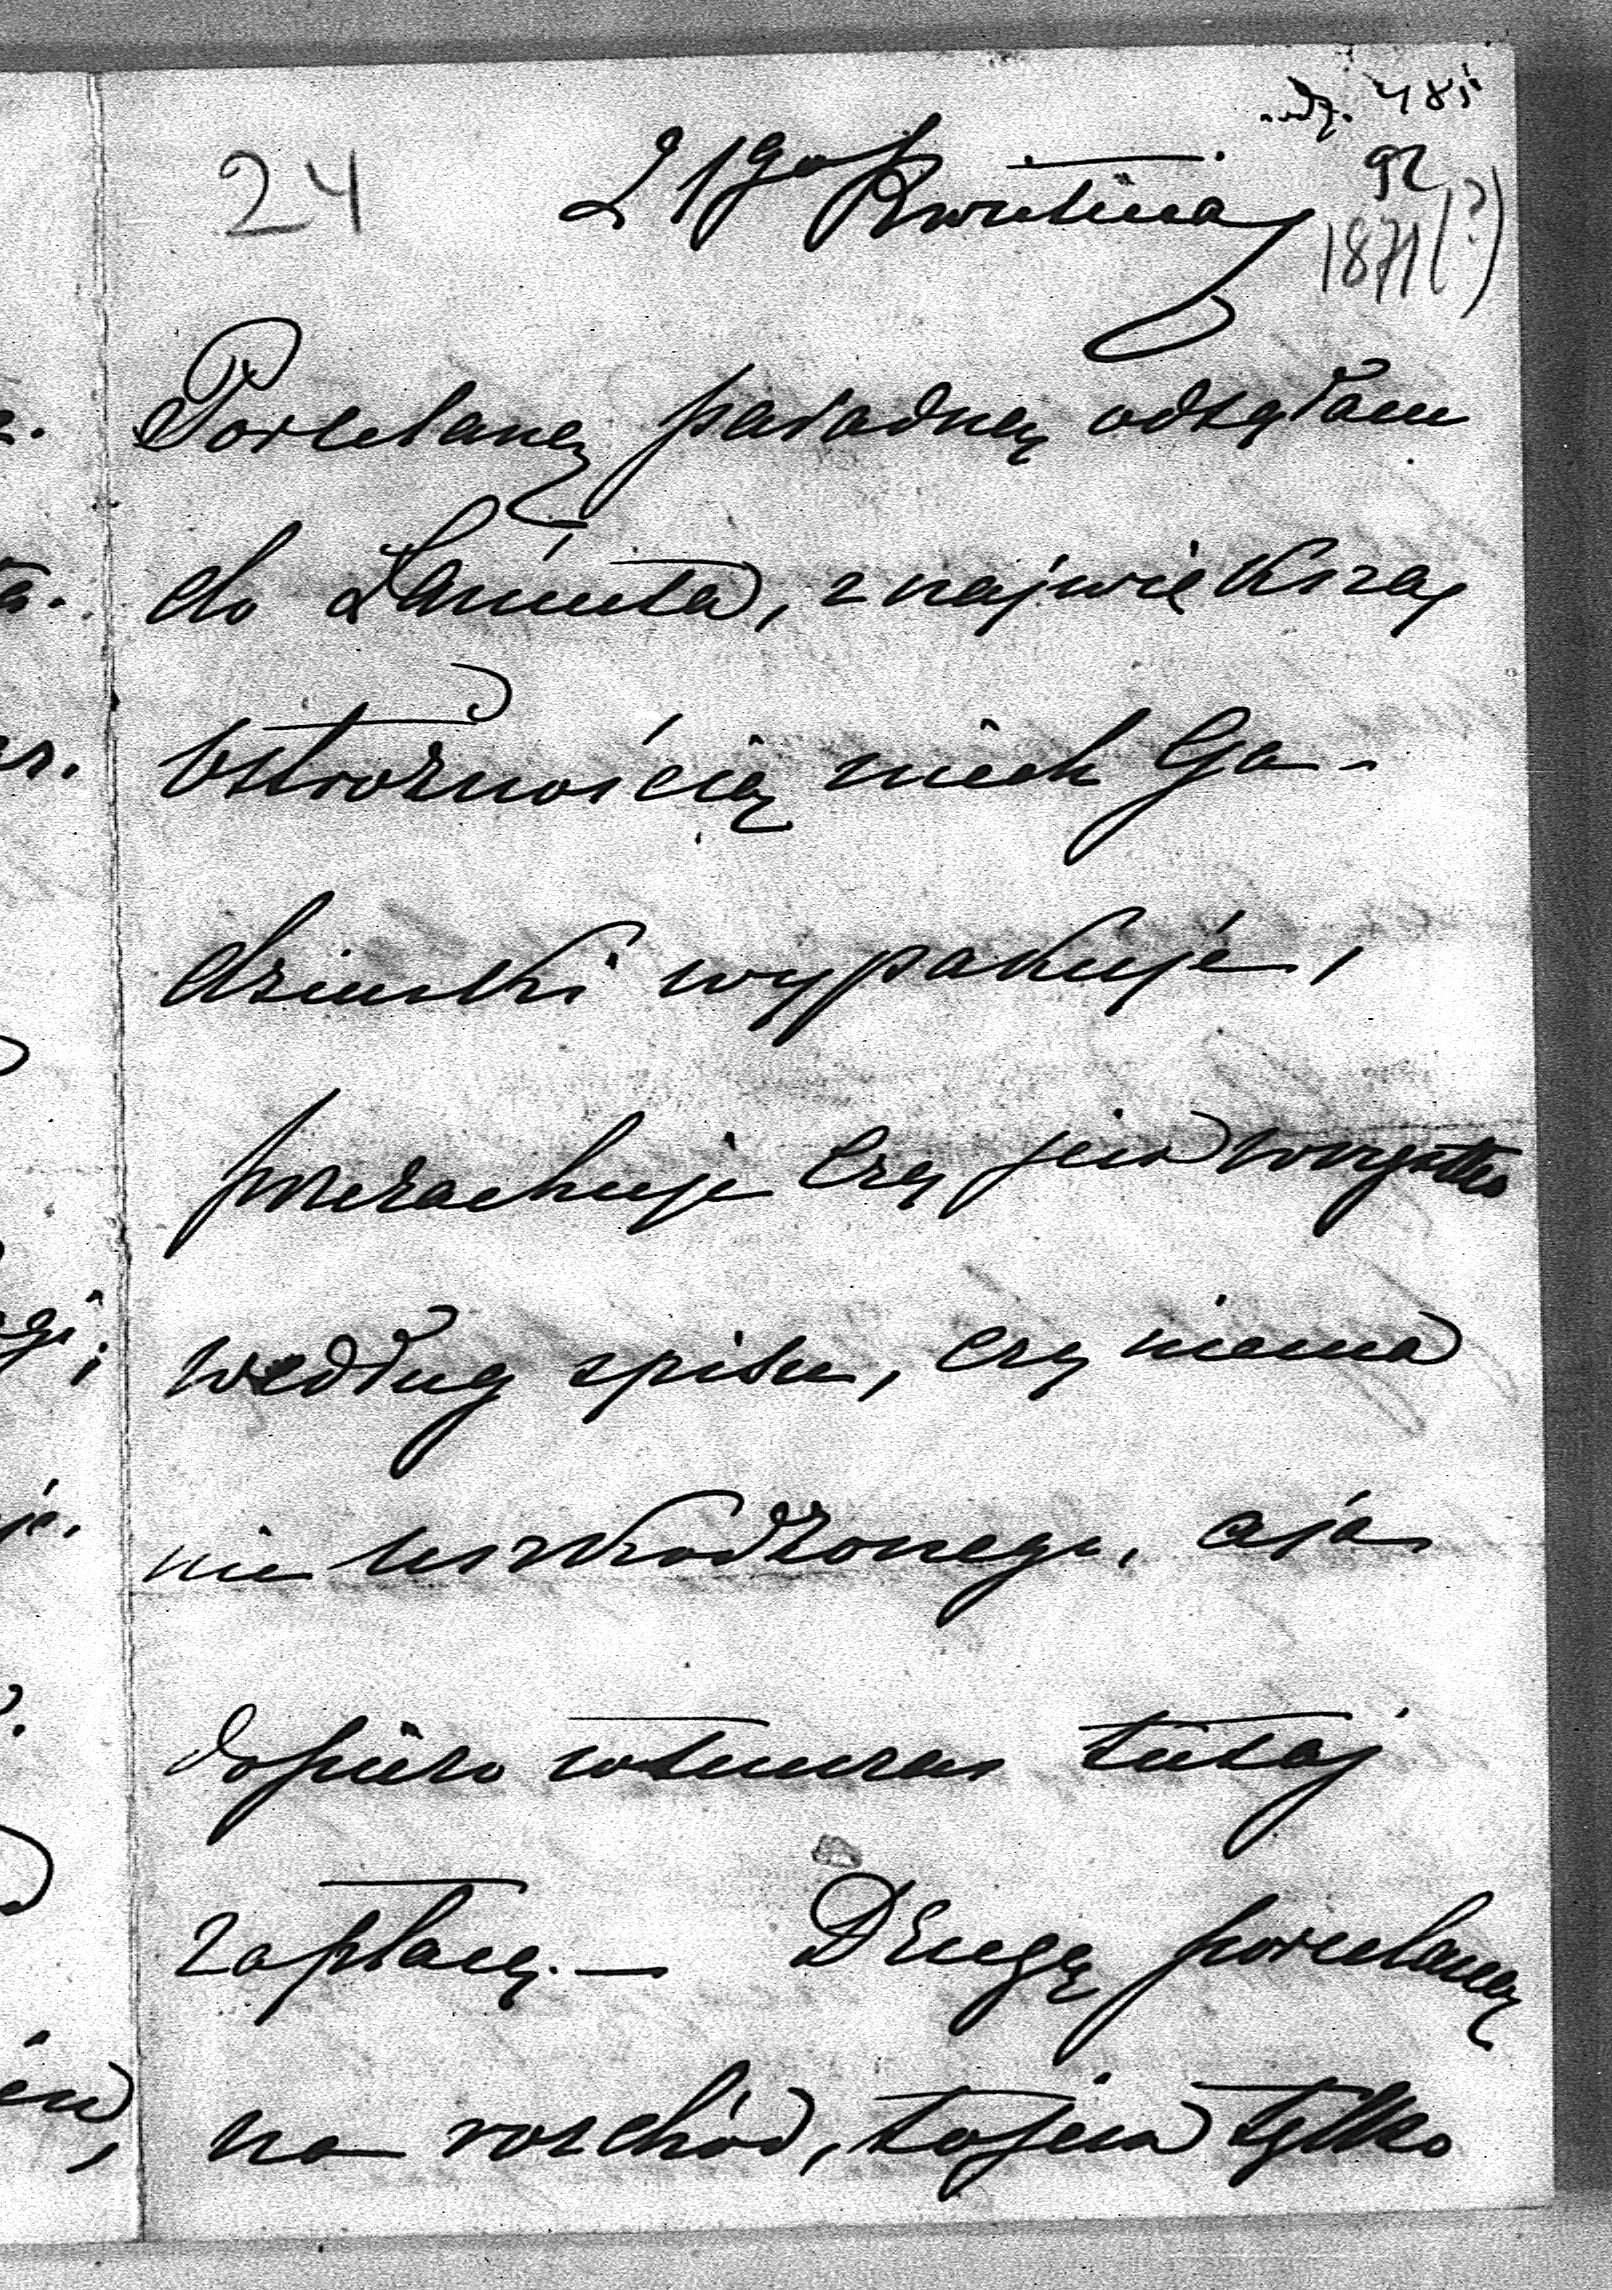 odz. 485
24 21go Kwietnia 92
1871(?)
Porcelanę paradnę odsyłam
do Łańcuta, z największą
ostrożnością niech Ga-
dziński wypakuje,
przerachuje czy jest wszystko
według spisu, czy niema
nic uszkodzonego, a ja
dopiero wtenczas tutaj
zapłacę. — Drugę porcelanę
na rozchód, to jest tylko